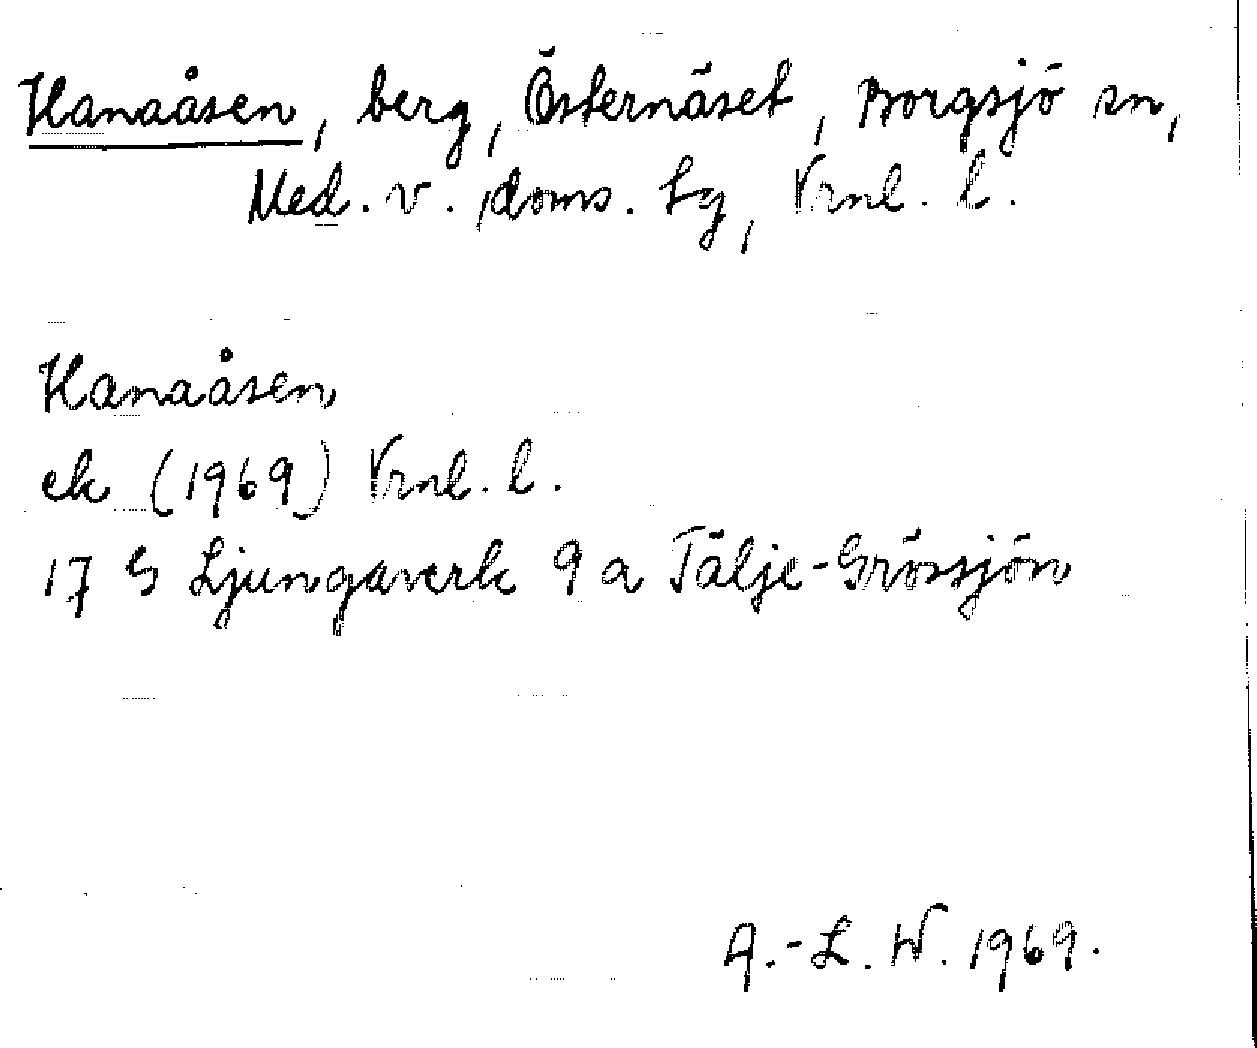 Hanaåsen, berg, Östernäset, Borgsjö sn,
Med. v. doms. Lg, Vrnl. l.
Hanaåsen
ek (1969) Vrnl. l.
17 G Ljungaverk 9 a Tälje-Grössjön
A.-L. W. 1969.